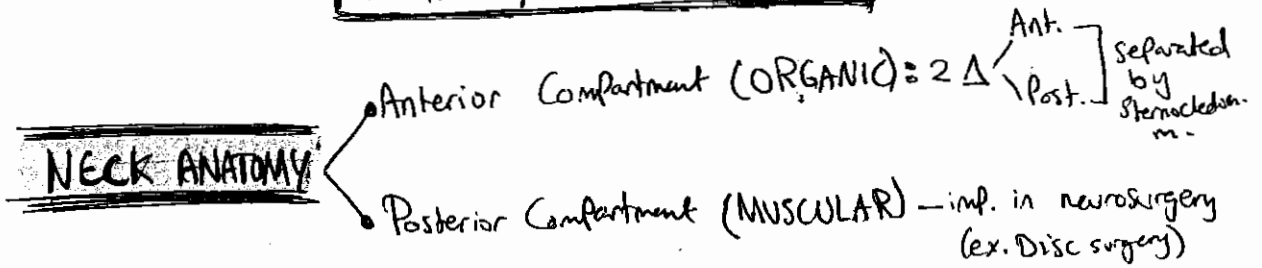 Ant.
Anterior Compartment (ORGANIC): 2 Δ
Post.
separated
by
Sternocledom.
m.
NECK ANATOMY
Posterior Compartment (MUSCULAR) – imp. in neurosurgery
(ex. Disc surgery)